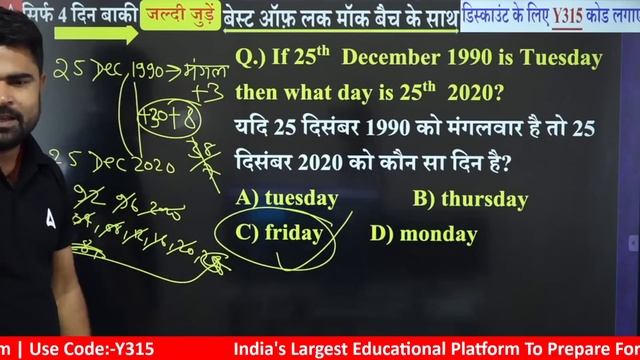 सिर्फ 4 दिन बाकी
जल्दी जुड़ें
बेस्ट ऑफ़ लक मॉक बैच के साथ
डिस्काउंट के लिए Y315 कोड लगाए
25 Dec 1990 → मंगल
+3
+30+8
38
7
25 Dec 2020
92 96 2000
Q.) If 25th December 1990 is Tuesday
then what day is 25th 2020?
यदि 25 दिसंबर 1990 को मंगलवार है तो 25
दिसंबर 2020 को कौन सा दिन है?
A) tuesday B) thursday
C) friday D) monday
m | Use Code:-Y315 India's Largest Educational Platform To Prepare For